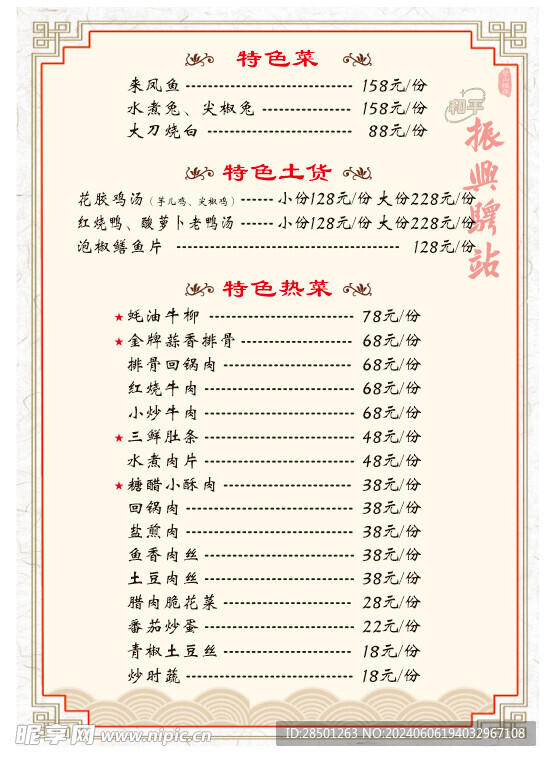 特色菜
来凤鱼 158元/份
水煮兔、尖椒兔 158元/份
大刀烧白 88元/份
和平
振兴驿站
特色土货
花胶鸡汤（芋儿鸡、尖椒鸡） 小份128元/份 大份228元/份
红烧鸭、酸萝卜老鸭汤 小份128元/份 大份228元/份
泡椒鳝鱼片 128元/份
特色热菜
★蚝油牛柳 78元/份
★金牌蒜香排骨 68元/份
排骨回锅肉 68元/份
红烧牛肉 68元/份
小炒牛肉 68元/份
★三鲜肚条 48元/份
水煮肉片 48元/份
★糖醋小酥肉 38元/份
回锅肉 38元/份
盐煎肉 38元/份
鱼香肉丝 38元/份
土豆肉丝 38元/份
腊肉脆花菜 28元/份
番茄炒蛋 22元/份
青椒土豆丝 18元/份
炒时蔬 18元/份
昵享网 www.nipic.cn
ID:28501263 NO:20240606194032967108